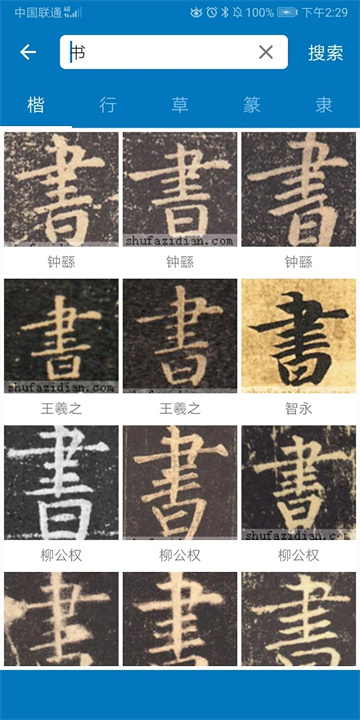 中国联通 4G 100% 下午2:29
书 搜索
楷 行 草 篆 隶
書 書 書
shufazidian.com shufazidian.com
钟繇 钟繇 钟繇
書 書 書
shufazidian.com shufazidian.com
王羲之 王羲之 智永
書 書 書
shufazidian.com
柳公权 柳公权 柳公权
書 書 書